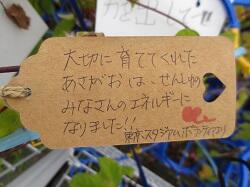 力を出して!!
大切に育ててくれた
あさがおは、せんしゅの
みなさんのエネルギーに
なりました!!
東京スタジアムボランティアより